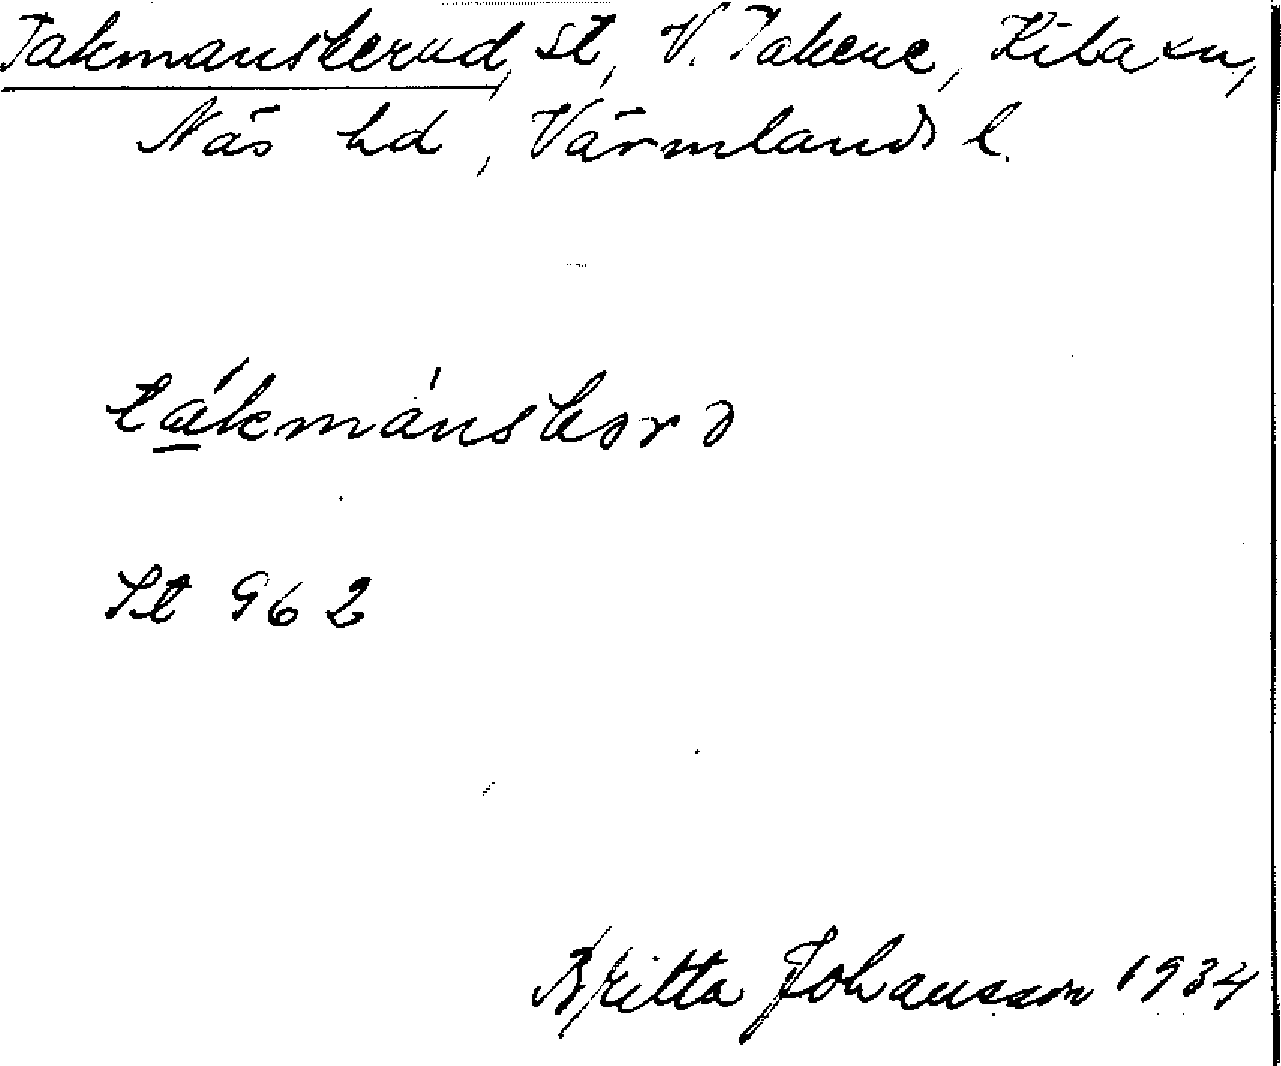 Takmanskerud, st, V. Takene, Kila sn,
Näs hd, Värmlands l.
tákmánskərə
St 962
Britta Johansson 1934